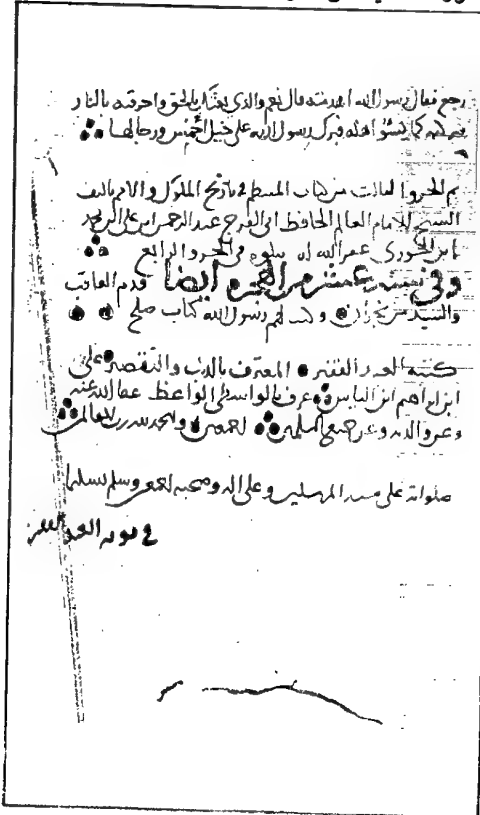 رجع فقال رسول الله اهدمته قال نعم والذي بعثك بالحق واحرقته بالنار
فتركته كما يسوء اهله فبرك رسول الله على خيل أحمس ورجالها
تم الجزو الثالث من كتاب المنتظم في تاريخ الملوك والامم تاليف
الشيخ الامام العالم الحافظ ابي الفرج عبد الرحمن ابن علي ابن محمد
ابن الجوزي غفر الله له يتلوه في الجزو الرابع
وفي سنة عشر من الهجرة ايضا قدم العاقب
والسيد من نجران وكتب لهم رسول الله كتاب صلح
كتبه العبد الفقير المعترف بالذنب والتقصير علي
ابن ابراهيم ابن الياس عرف بالواسطي الواعظ عفا الله عنه
وعن والديه وعن جميع المسلمين اجمعين والحمد لله رب العالمين
صلواته على سيد المرسلين وعلى اله وصحبه اجمعين وسلم تسليما
في نوبه العبد